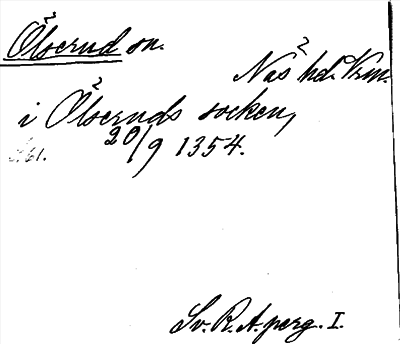 Ölserud sn.
Näs hd. Vrm.
i Ölseruds socken,
20/9 1354.
S. 61.
Sv. R. A. perg. I.